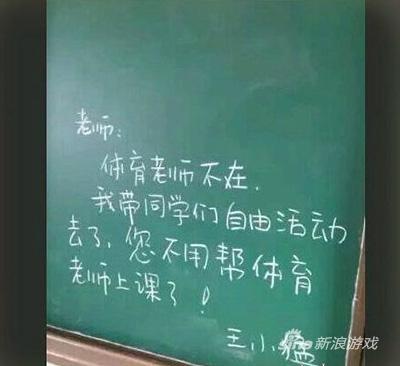 老师:
体育老师不在.
我带同学们自由活动
去了,您不用帮体育
老师上课了!
王小猛
sina新浪游戏